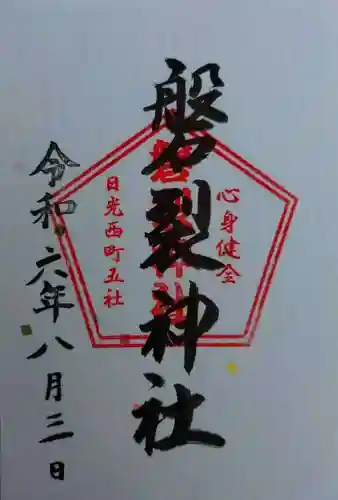 心身健全
磐裂神社
磐裂神社
日光西町五社
令和六年八月三日